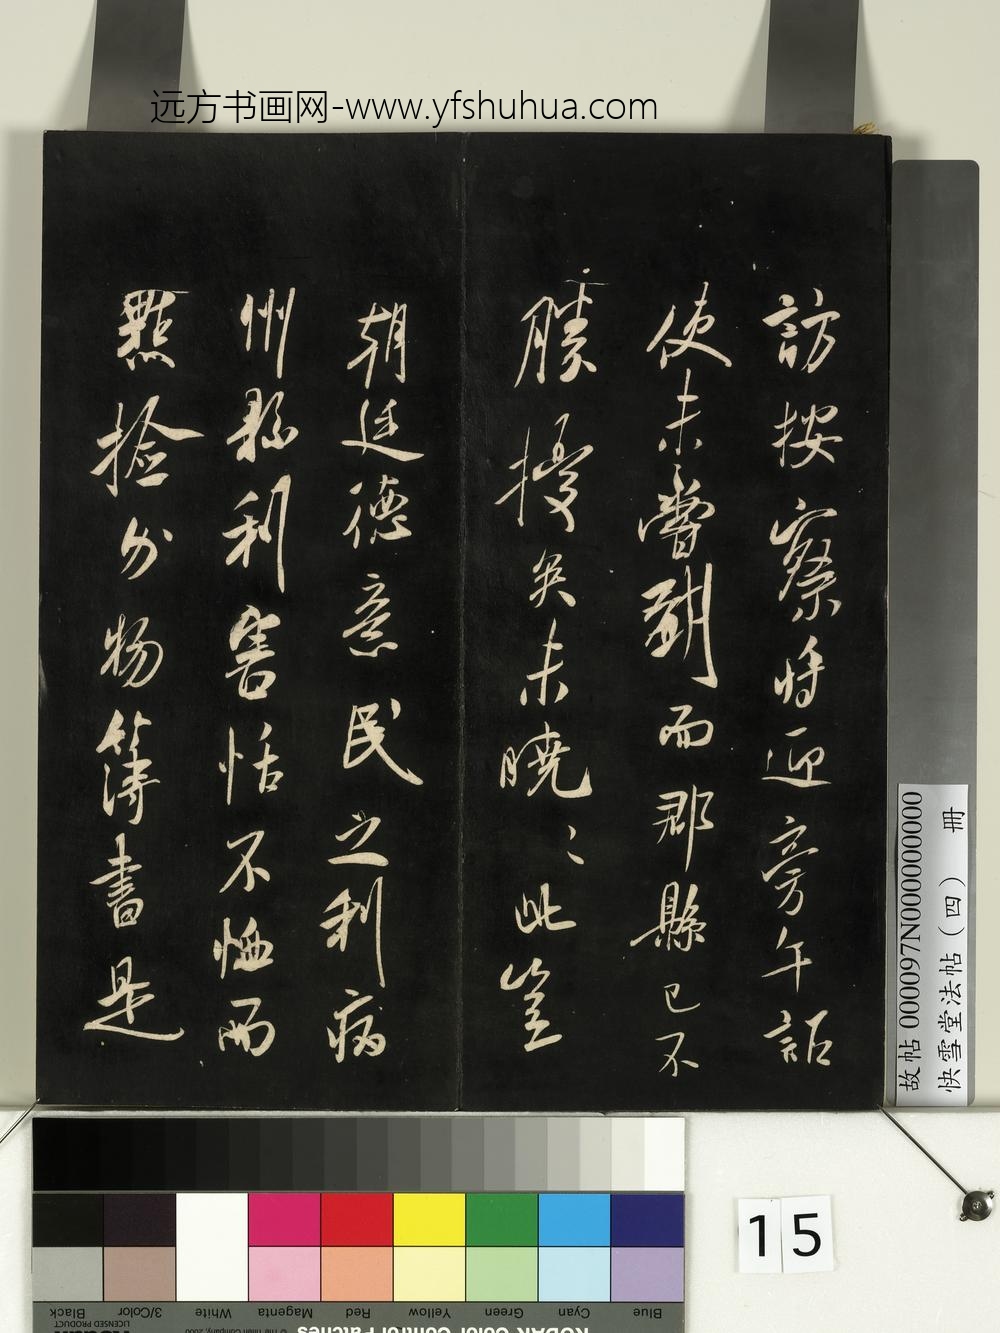 远方书画网-www.yfshuhua.com
訪按察将迎旁午詔
使未嘗到而郡縣已不
勝擾矣未曉〻此豈
朝廷德意民之利病
州縣利害恬不恤而
點捡分物簿書是
故帖 000097N000000000
快雪堂法帖（四） 冊
15
Blue Cyan Green Yellow Red Magenta White 3/Color Black
KODAK Color Control Patches
LICENSED PRODUCT